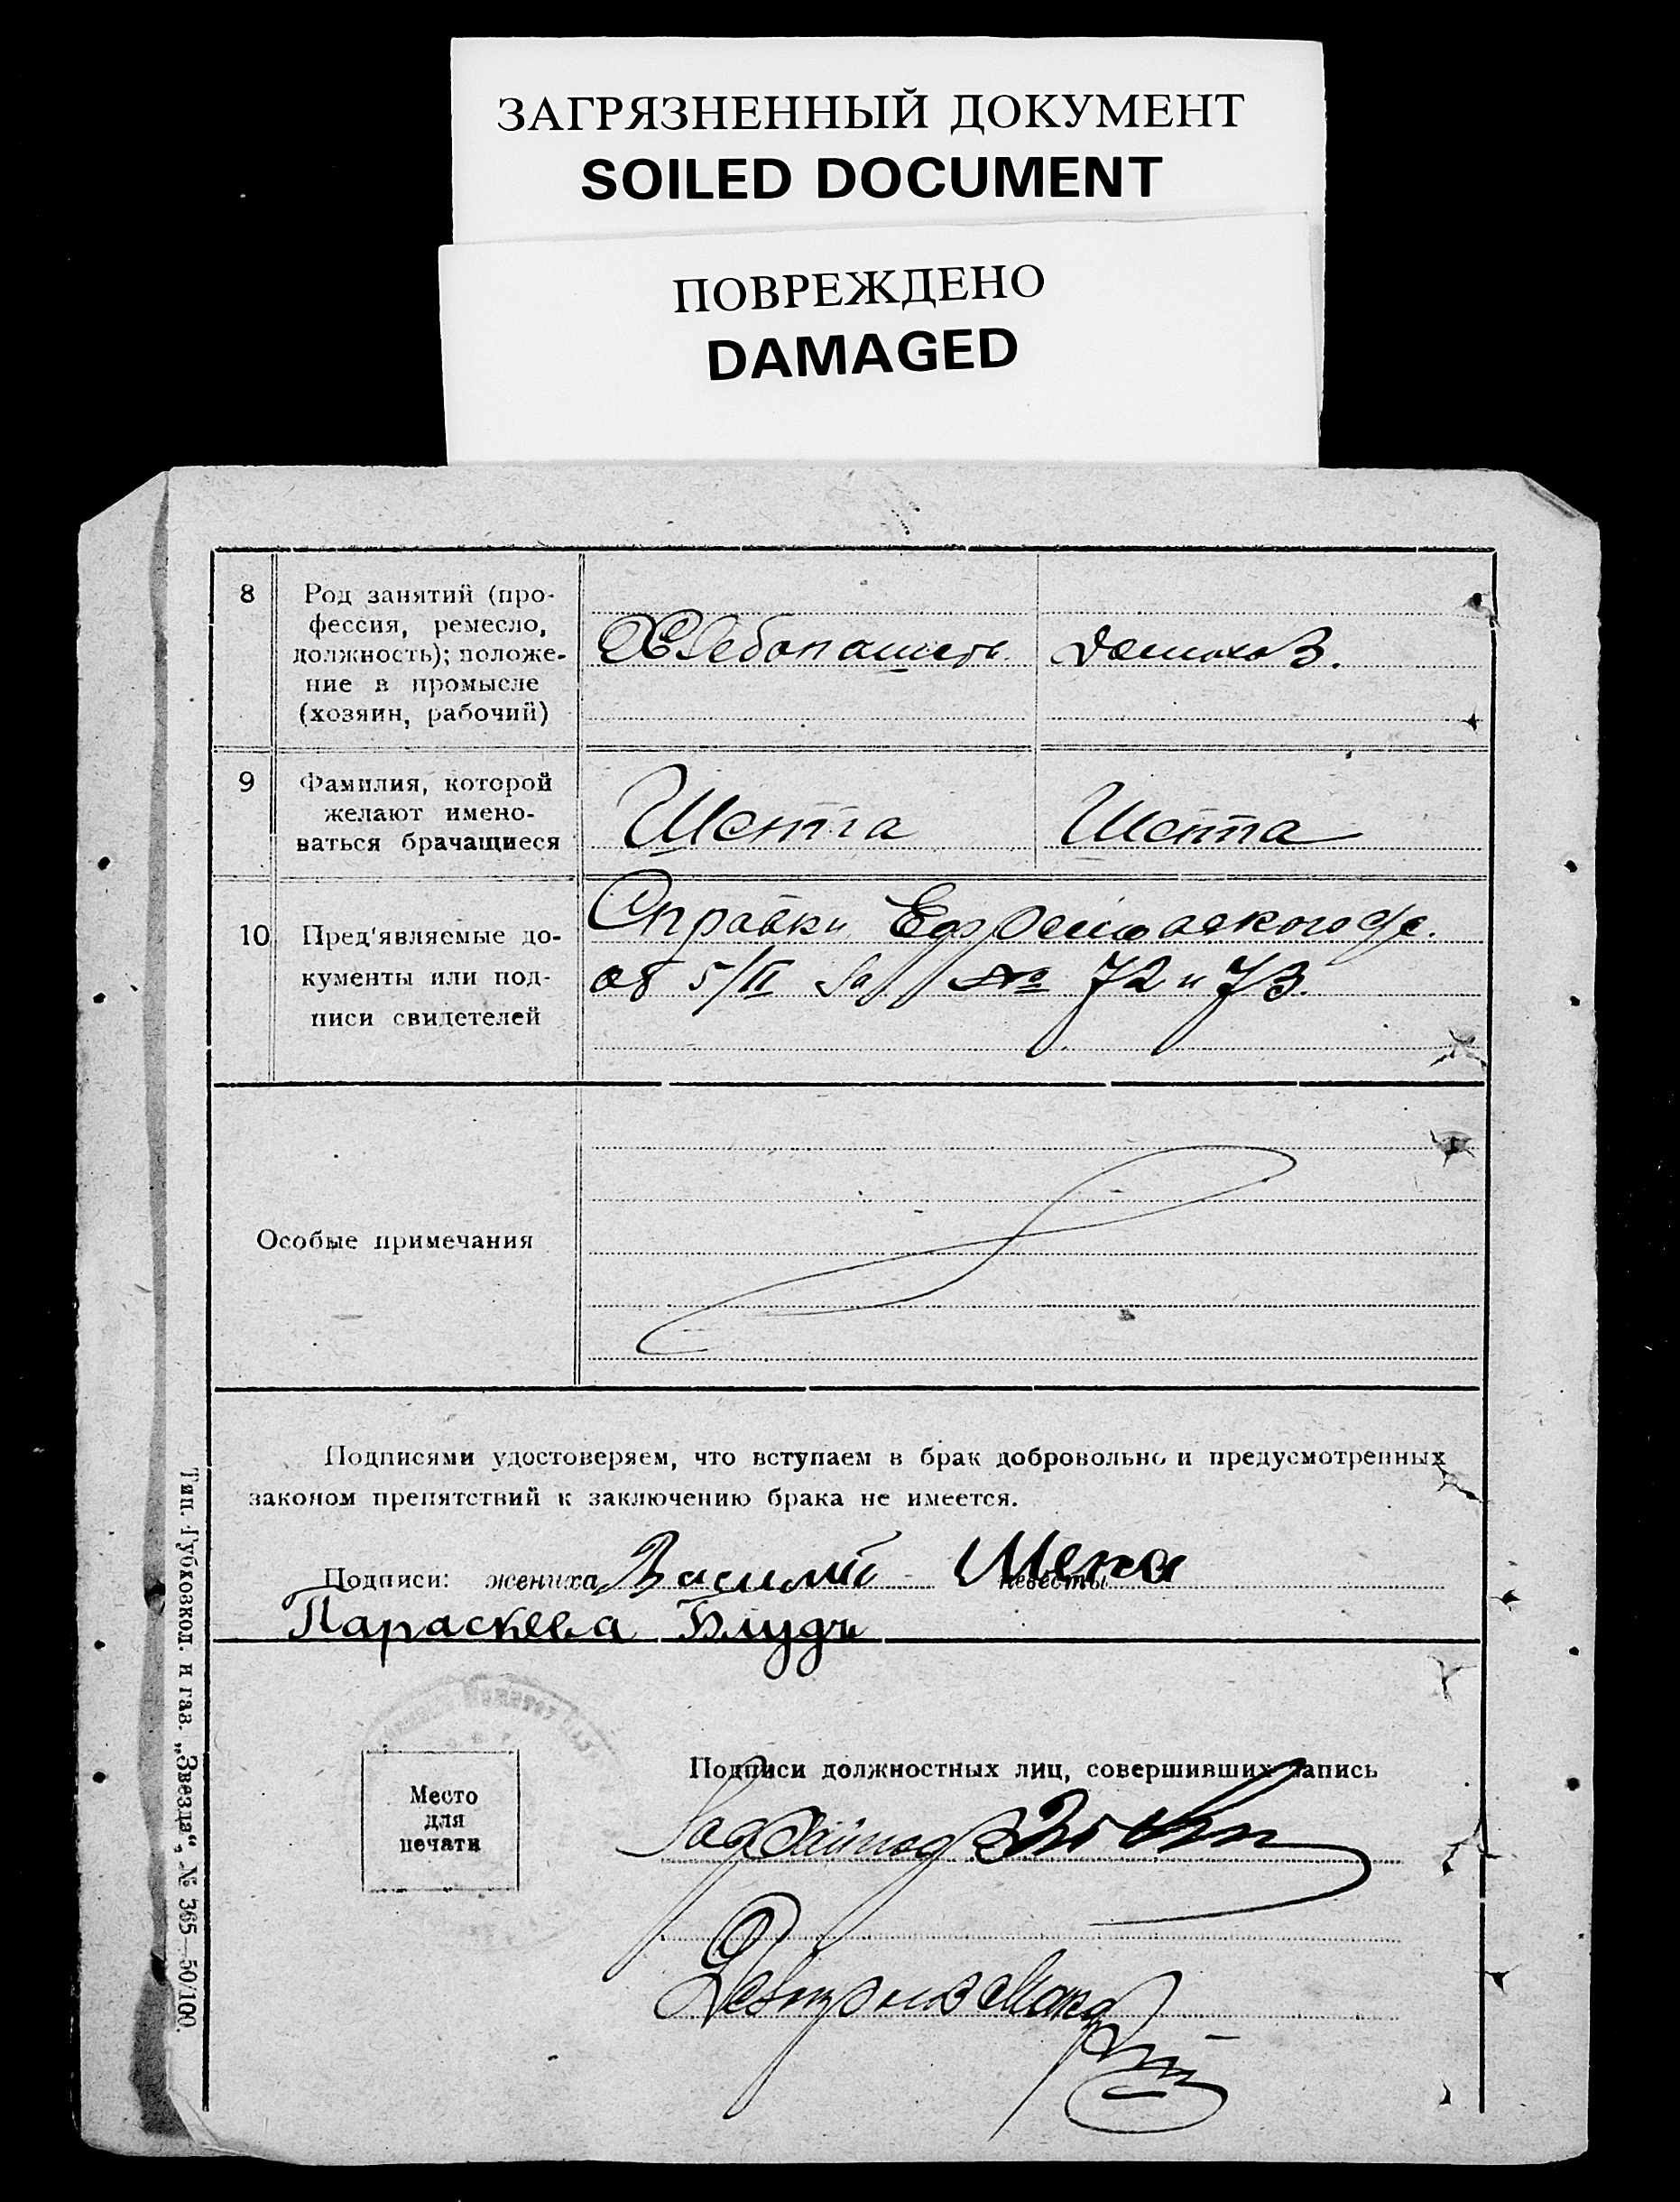 ЗАГРЯЗНЕННЫЙ ДОКУМЕНТ
SOILED DOCUMENT
ПОВРЕЖДЕНО
DAMAGED
8
Род занятий (про-
фессия, ремесло,
должность); положе-
ние в промысле
(хозяин, рабочий)
Хлебопашец
домохоз.
9
Фамилия, которой
желают имено-
ваться брачащиеся
Шепта Шепта
10
Пред'являемые до-
кументы или под-
писи свидетелей
Справки
об 5/II за № 72 и 73.
Особые примечания
Подписями удостоверяем, что вступаем в брак добровольно и предусмотренных
законом препятствий к заключению брака не имеется.
Подписи: жениха Василий невесты
Параскева
Место
для
печати
Подписи должностных лиц, совершивших запись
Тип. Губковкол и газ. „Звезда“, № 365—50/100.